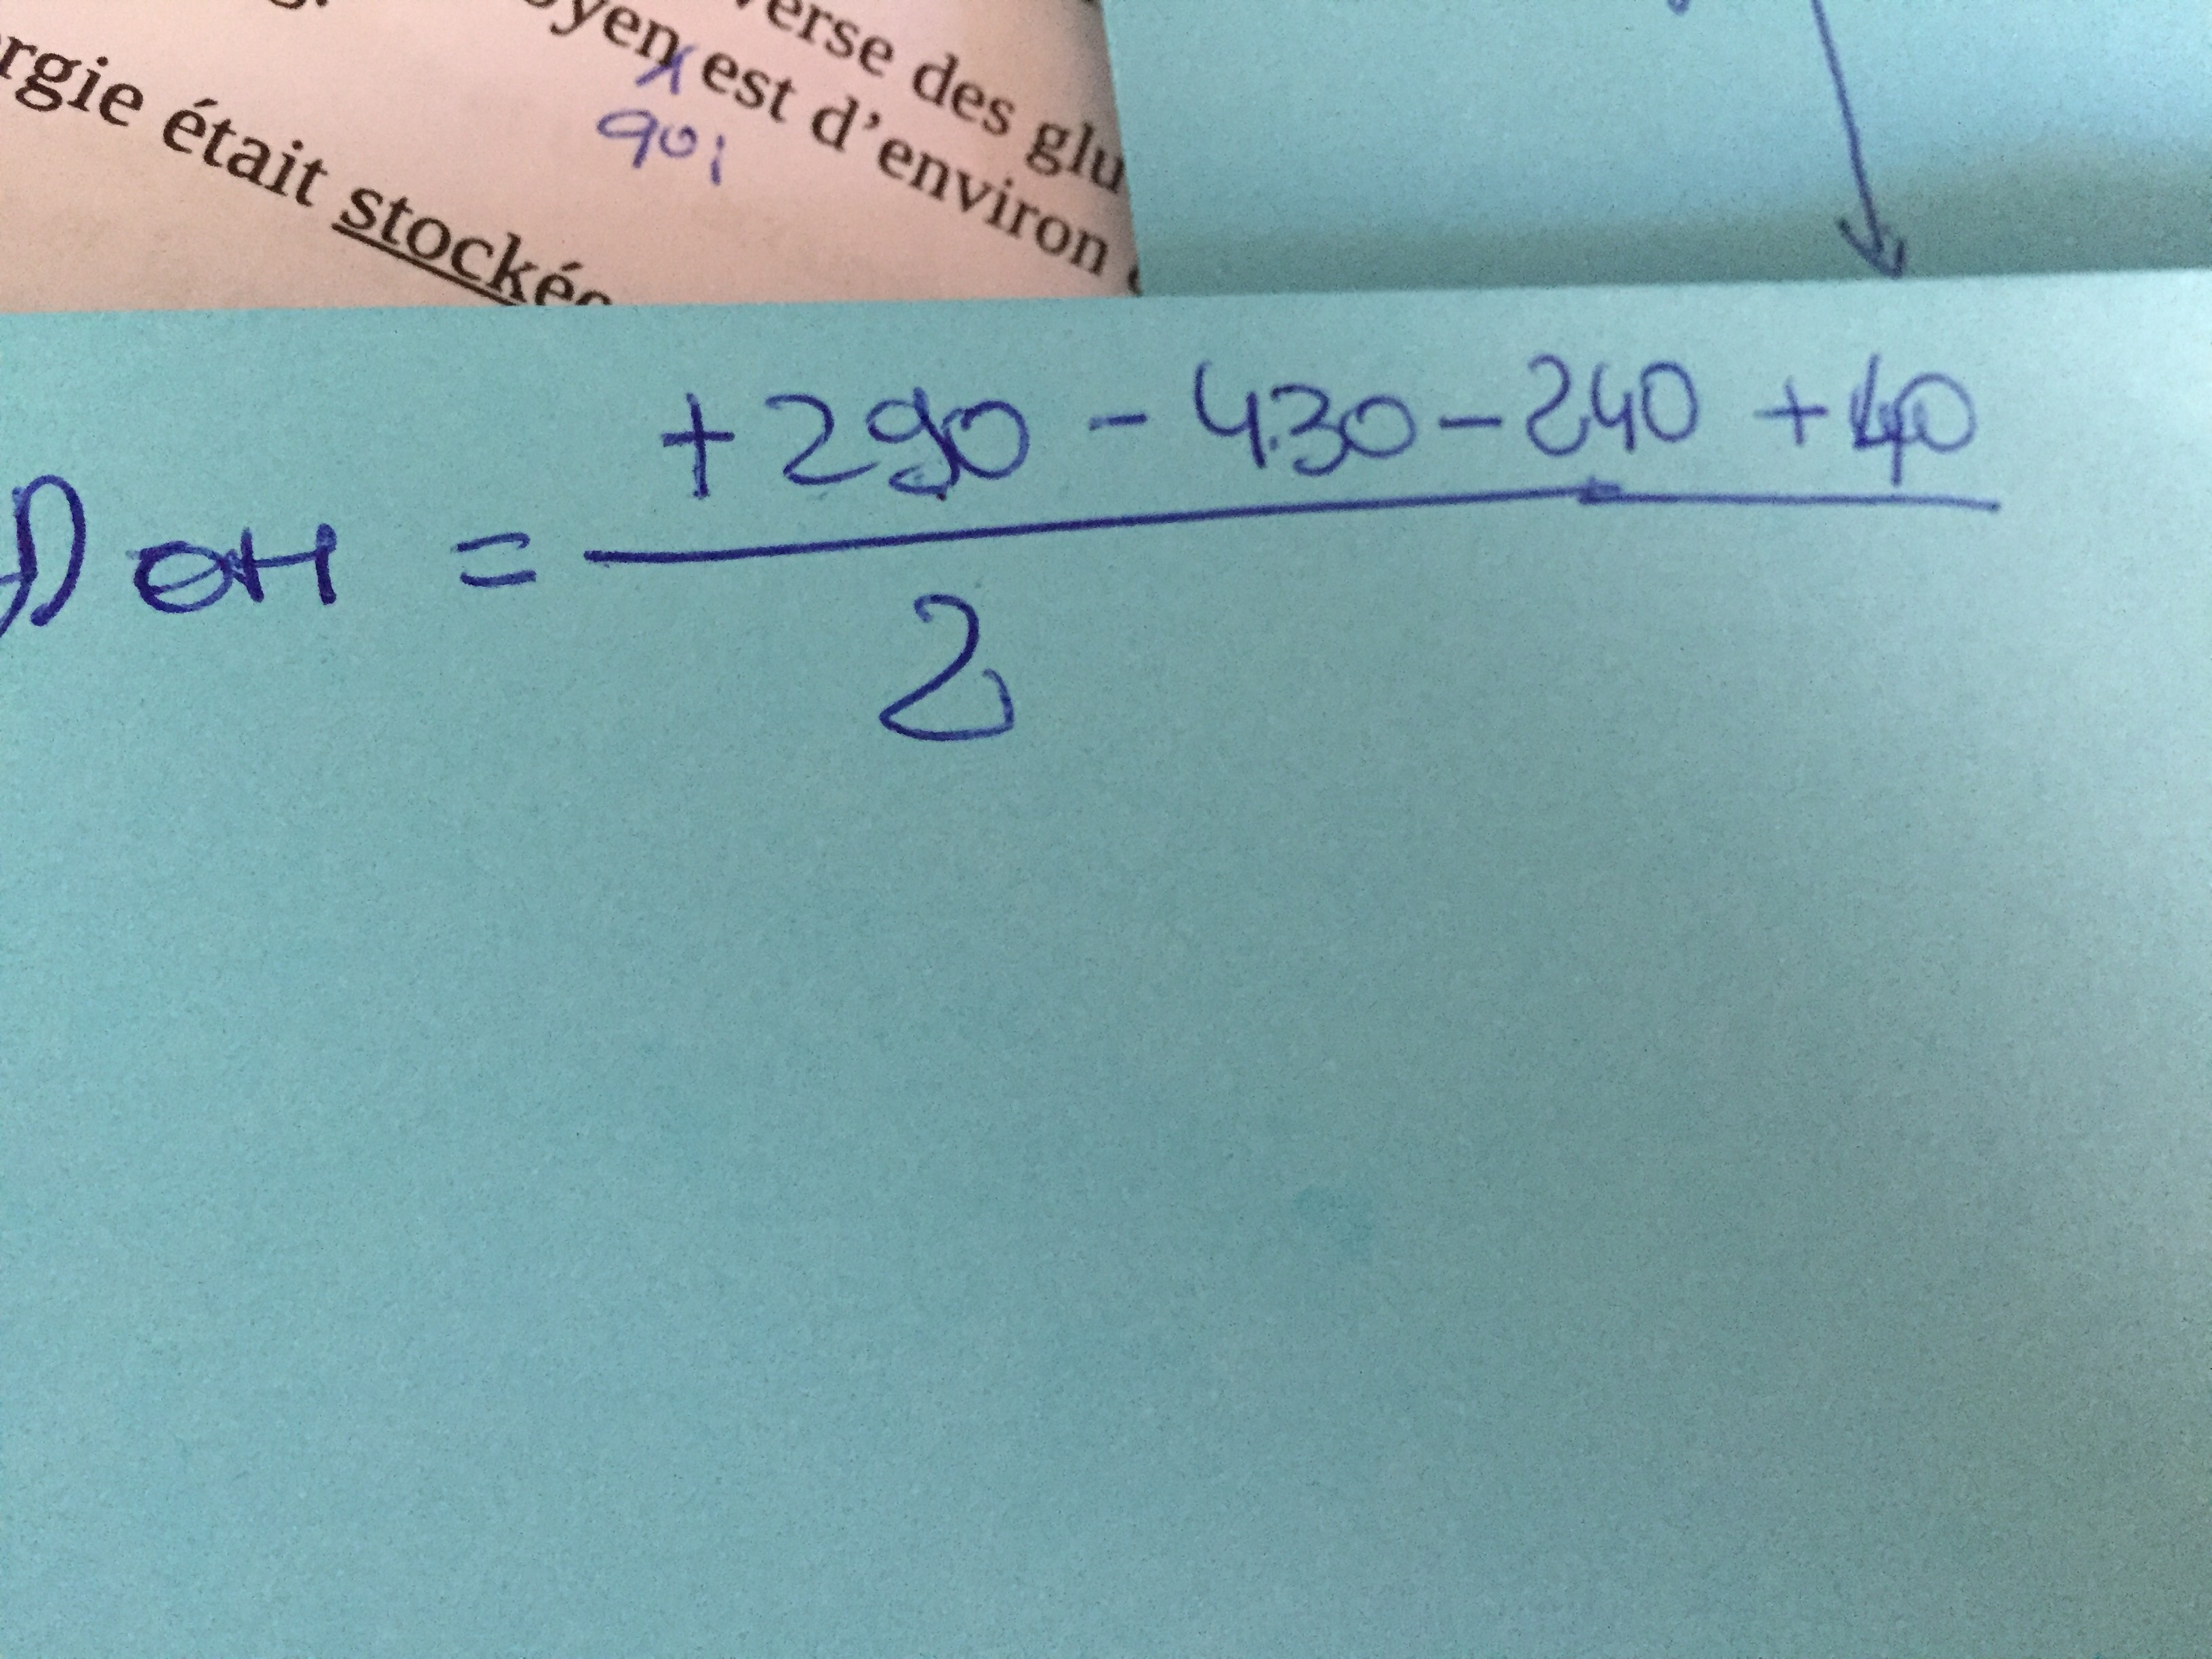 verse des glu
oyen est d'environ
90;
rgie était stockée
D OH = +290 - 430 - 240 + 40
2